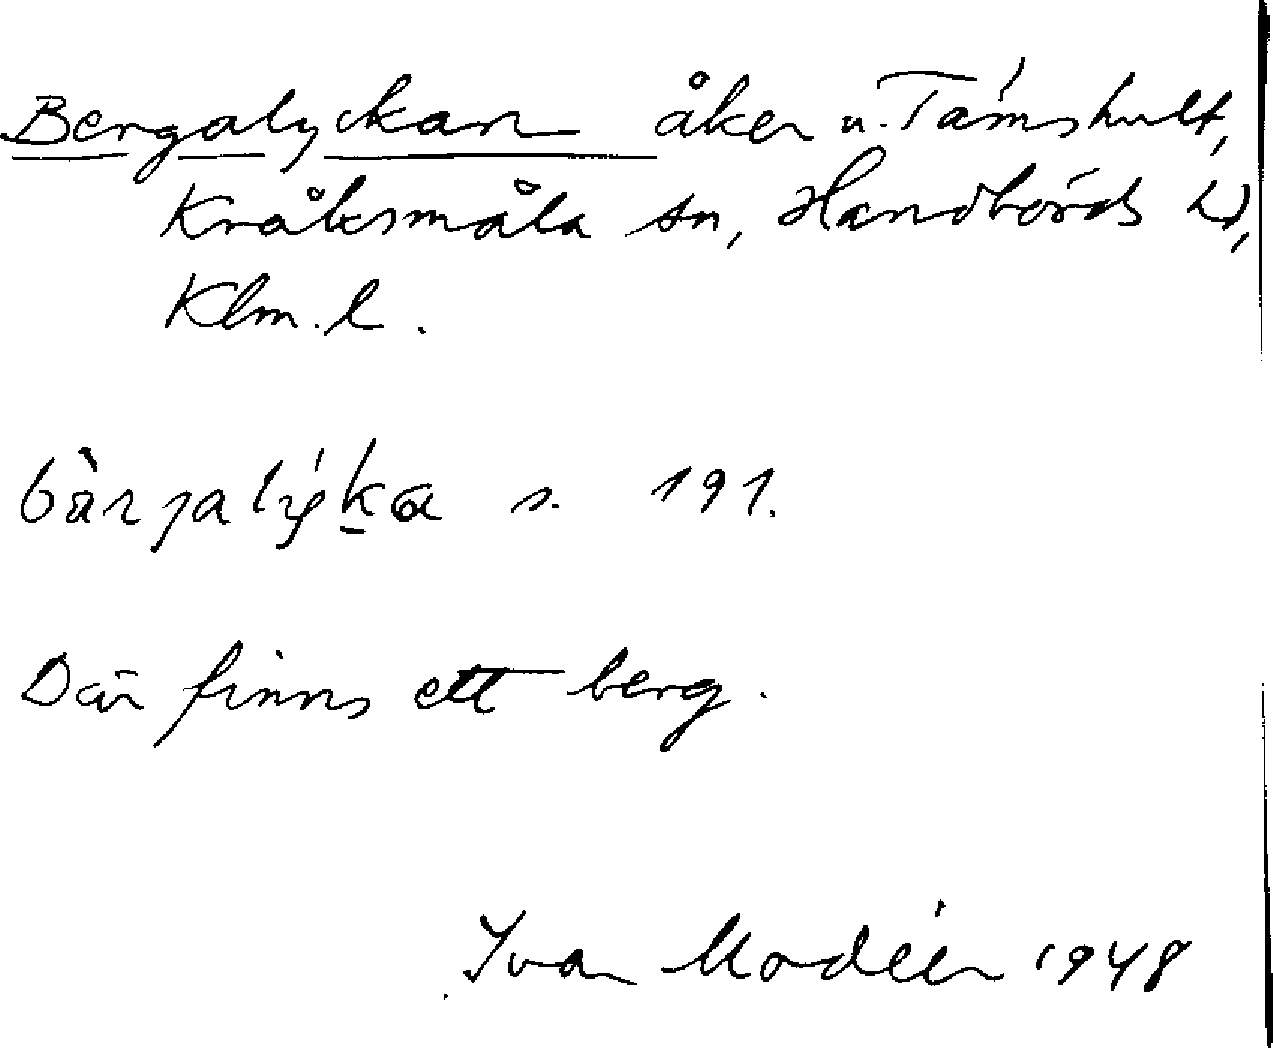 Bergalyckan åker u. Tämshult,
Kråksmåla sn, Handbörds hd,
Klm. l.
bàrjalýka s. 191.
Där finns ett berg.
Ivar Modéer 1948